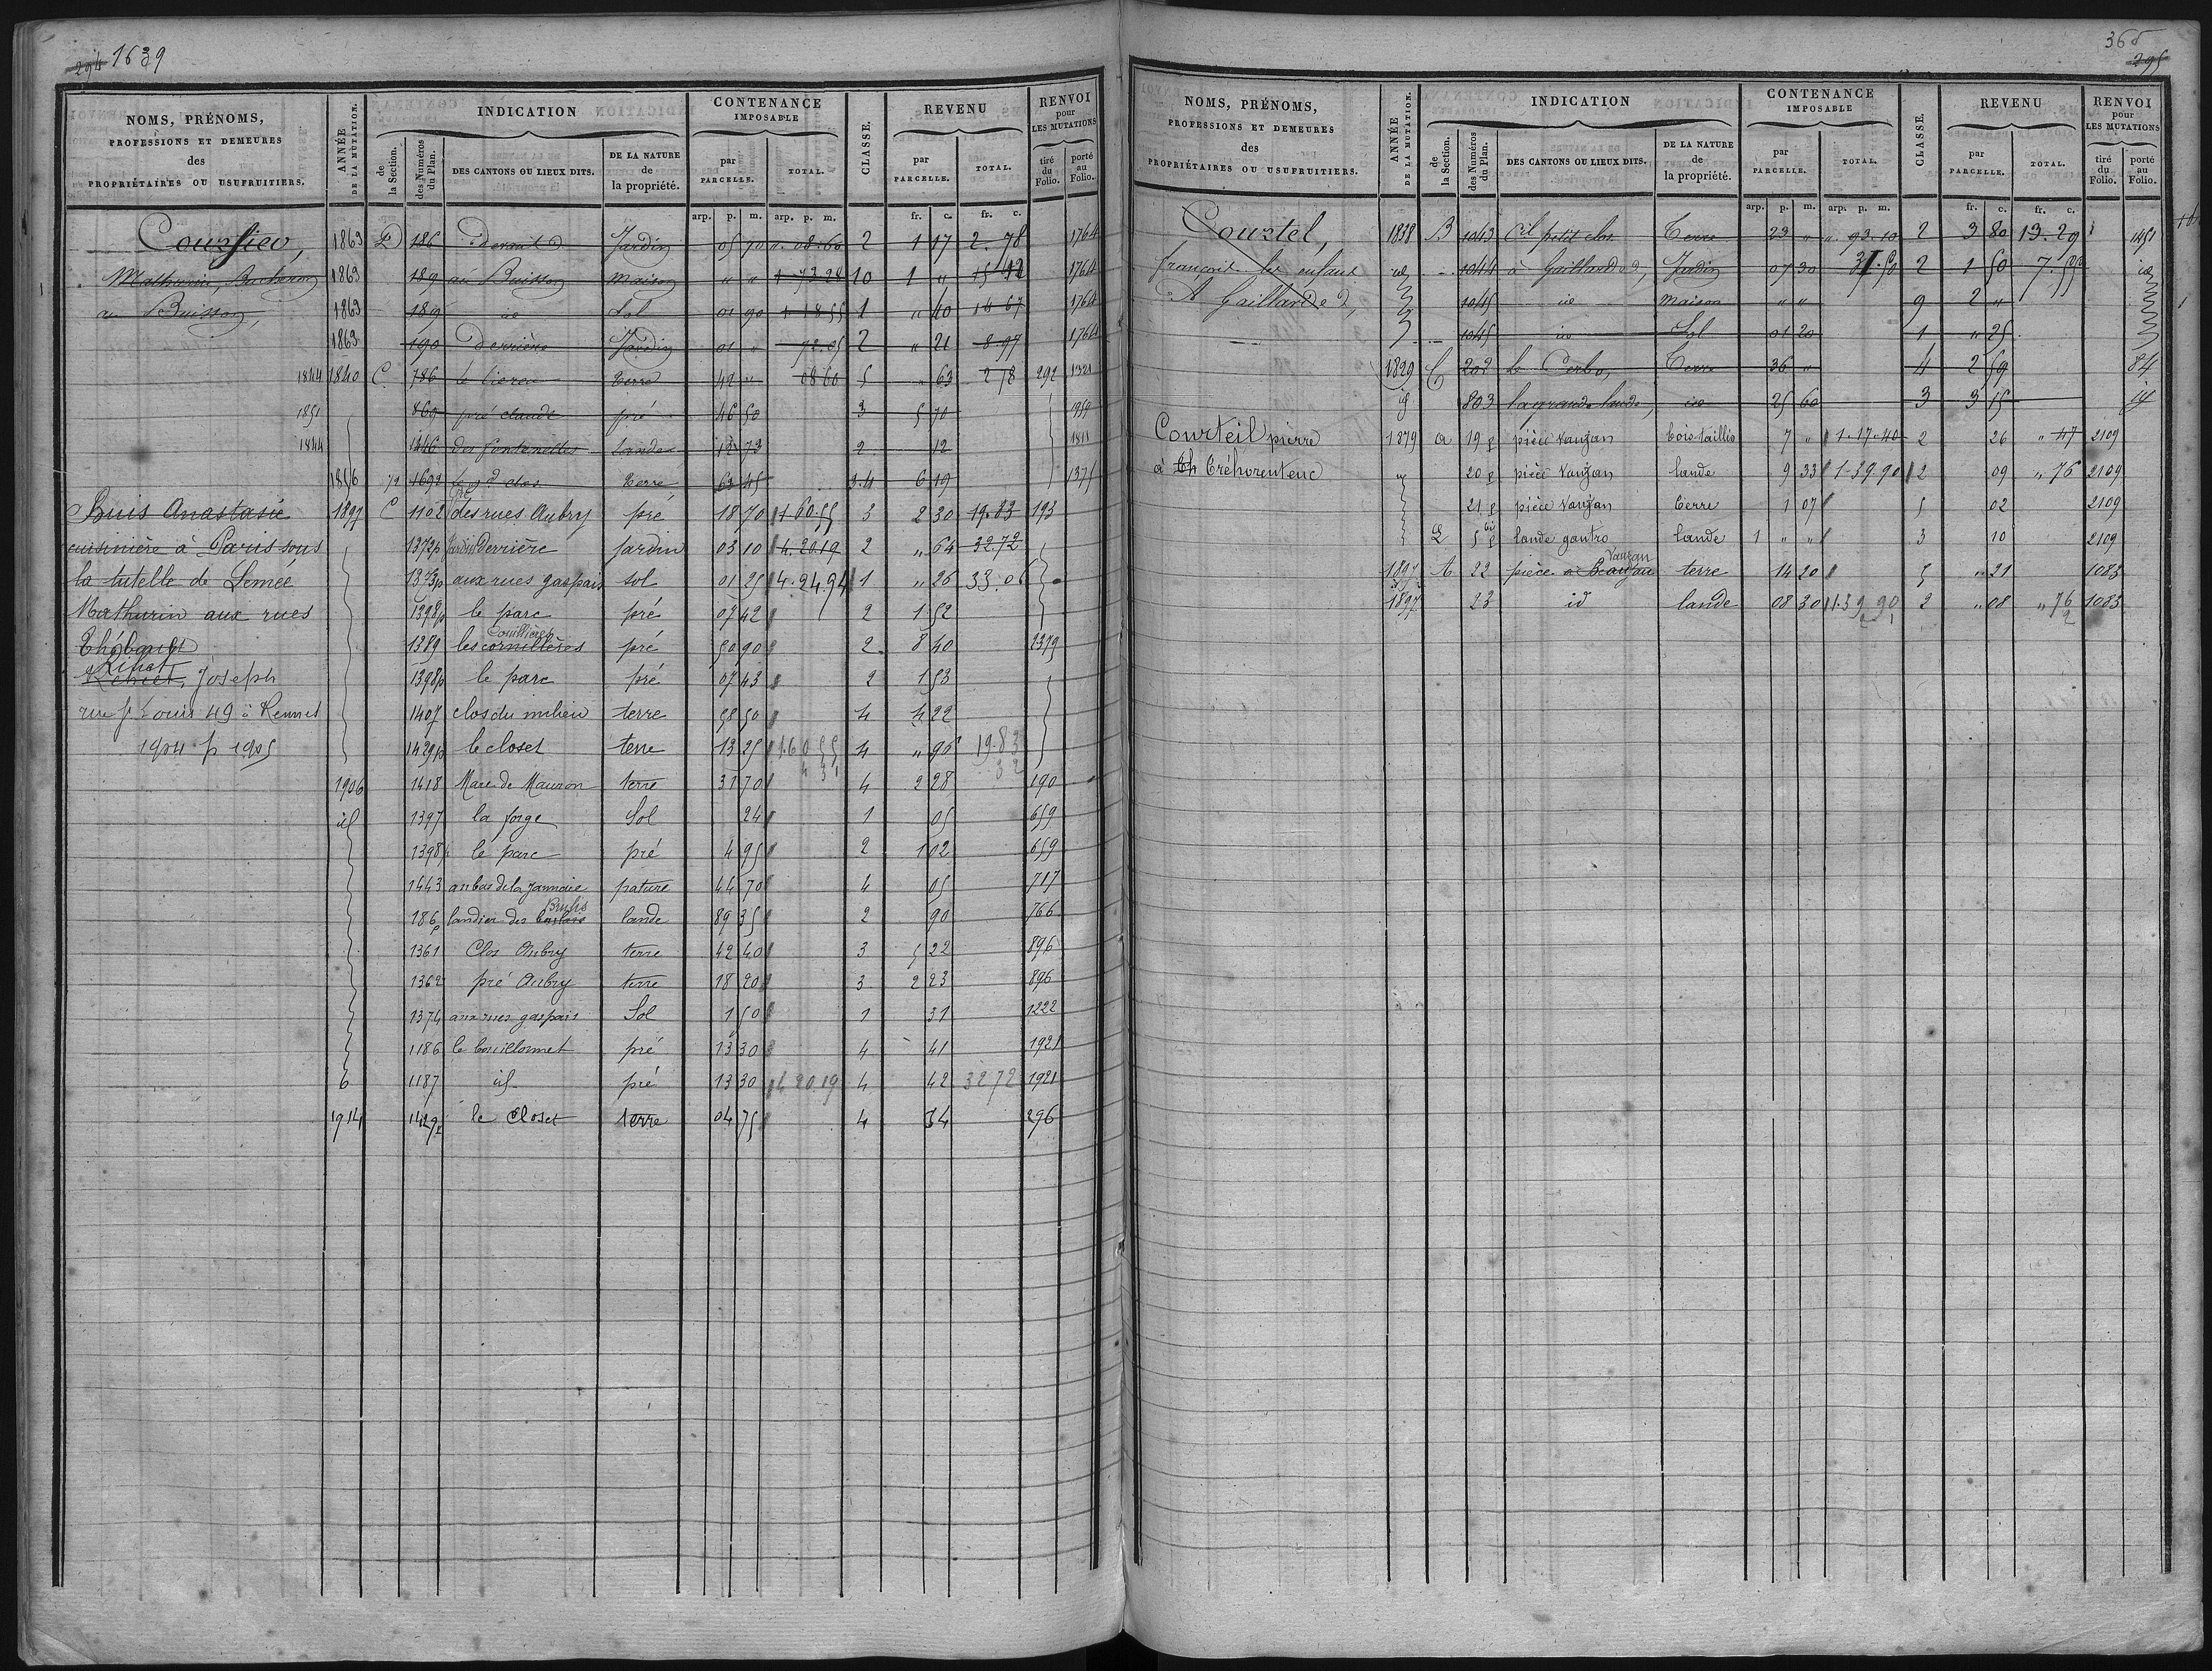 294 1639
NOMS, PRÉNOMS, PROFESSIONS ET DEMEURES des PROPRIÉTAIRES OU USUFRUITIERS.
ANNÉE DE LA MUTATION.
INDICATION
de la Section.
des Numéros du Plan.
DES CANTONS OU LIEUX DITS.
DE LA NATURE de la propriété.
CONTENANCE IMPOSABLE
par PARCELLE.
TOTAL.
CLASSE.
REVENU
par PARCELLE.
TOTAL.
RENVOI pour LES MUTATIONS
tiré du Folio.
porté au Folio.
arp. p. m. arp. p. m. fr. c. fr. c.
1863 D 186 Jardin 05 70 ". 08. 60 2 1 17 2. 78 1764
Mathurin, 1863 189 au Buisson maison " " 1 73 28 10 1 " 15 12 1764
au Buisson, 1863 189 id Sol 01 90 1 18 55 1 " 40 14 67 1764
1863 190 derrière Jardin 01 " 72. 05 2 " 21 8. 97 1764
1844 1840 C. 786 terre 42 " 08 60 5 " 63 2 78 292 1321
1851 869 pré claude pré 46 50 3 5 70
1844 1446 des fontenelles lande 12 73 2 12 1811
1856 1692 terre 63 45 3.4 6 19 1375
Buis Anastasie 1897 C 1102 des rues Aubry pré 18 70 1. 60. 55 3 2 30 19. 83 193
cuisinière à Paris sous 1372p Jardin Derrière jardin 03 10 4. 20. 19 2 " 64 32. 72
la tutelle de Lemée 1373p aux rues gaspais sol 01 25 4. 24. 94 1 " 26 33. 06
Mathurin aux rues 1398p le parc pré 07 42 2 1 52
Thébault 1389 les cornillères Couillères pré 50 90 2 8 40 1379
Joseph 1398p le parc pré 07 43 2 1 53
rue St Louis 49 à Rennes 1407 clos du milieu terre 58 50 4 4 22
1904 p 1905 1429p le closet terre 13 25 1. 60 55 4 " 96 19. 83
1906 1418 Mare de Mauron terre 31 70 4 2 28 190
id 1397 la forge Sol 24 1 05 659
1398p le parc pré 4 95 2 1 02 659
1443 au bas de la Jannaie pature 44 70 4 05 717
186p landier des Brulis lande 89 35 2 90 766
1361 Clos Aubry terre 42 40 3 5 22 896
1362 pré Aubry terre 18 20 3 2 23 896
1374 aux rues gaspais Sol 1 50 1 31 1222
1186 le bouillonnet pré 13 30 4 41 1921
1187 id pré 13 30 4 20. 19 4 42 32 72 1921
1914 1429p le Closet terre 04 75 4 34 296
365
295
NOMS, PRÉNOMS, PROFESSIONS ET DEMEURES des PROPRIÉTAIRES OU USUFRUITIERS.
ANNÉE DE LA MUTATION.
INDICATION
de la Section.
des Numéros du Plan.
DES CANTONS OU LIEUX DITS.
DE LA NATURE de la propriété.
CONTENANCE IMPOSABLE
par PARCELLE.
TOTAL.
CLASSE.
REVENU
par PARCELLE.
TOTAL.
RENVOI pour LES MUTATIONS
tiré du Folio.
porté au Folio.
arp. p. m. arp. p. m. fr. c. fr. c.
Courtel, 1838 B 1043 petit clos Terre 23 " ". 93. 10 2 3 80 13. 29 1451
françois les enfans id 1044 à Gaillarde, Jardin 07 30 37. 50 2 1 50 7. 55 id
A Gaillarde, 1045 id maison " " 9 2 "
1045 id Sol 01 20 1 " 25
1829 C 202 Terre 36 " 4 2 59 84
id 803 la grande lande, id 25 60 3 3 15 id
Courteil pierre 1879 a 19p pièce Vauzan bois taillis 7 " 1. 17. 40 2 26 " 47 2109
à Tréhorenteuc 20p pièce Vauzan lande 9 33 1. 39. 90 2 09 " 76 2109
21p pièce Vauzan terre 1 07 5 02 2109
lande gautro lande 1 " " 3 10 2109
1897 A 22 pièce Vauzan terre 14 20 5 " 21 1083
1897 23 id lande 08 30 1. 39 90 2 " 08 " 76 1083